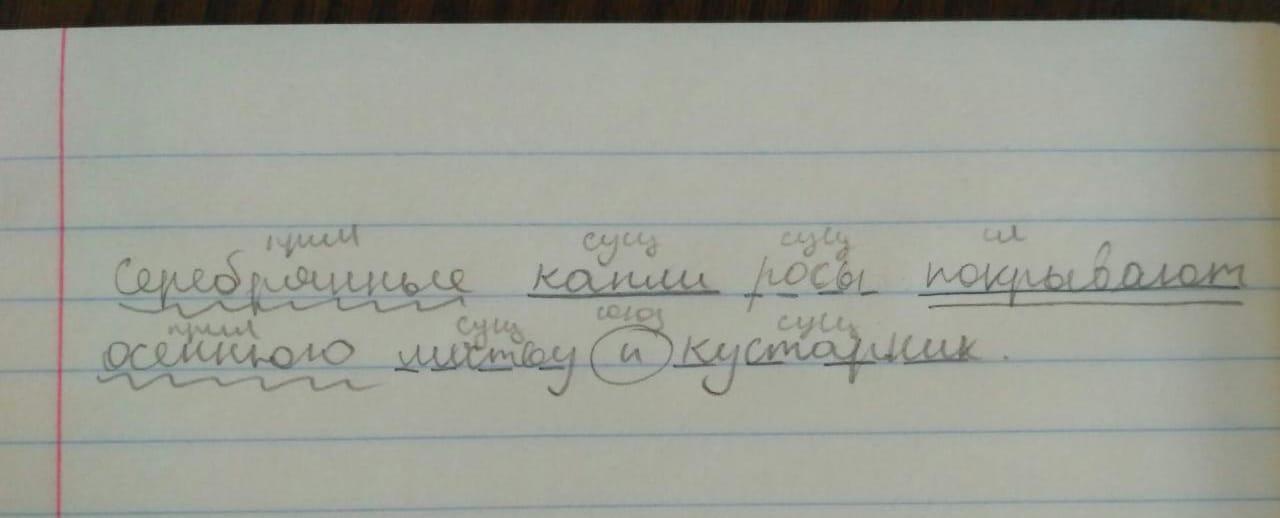 прил сущ сущ гл
Серебрянные капли росы покрывают
прил сущ союз сущ
осеннюю листву и кустарник.